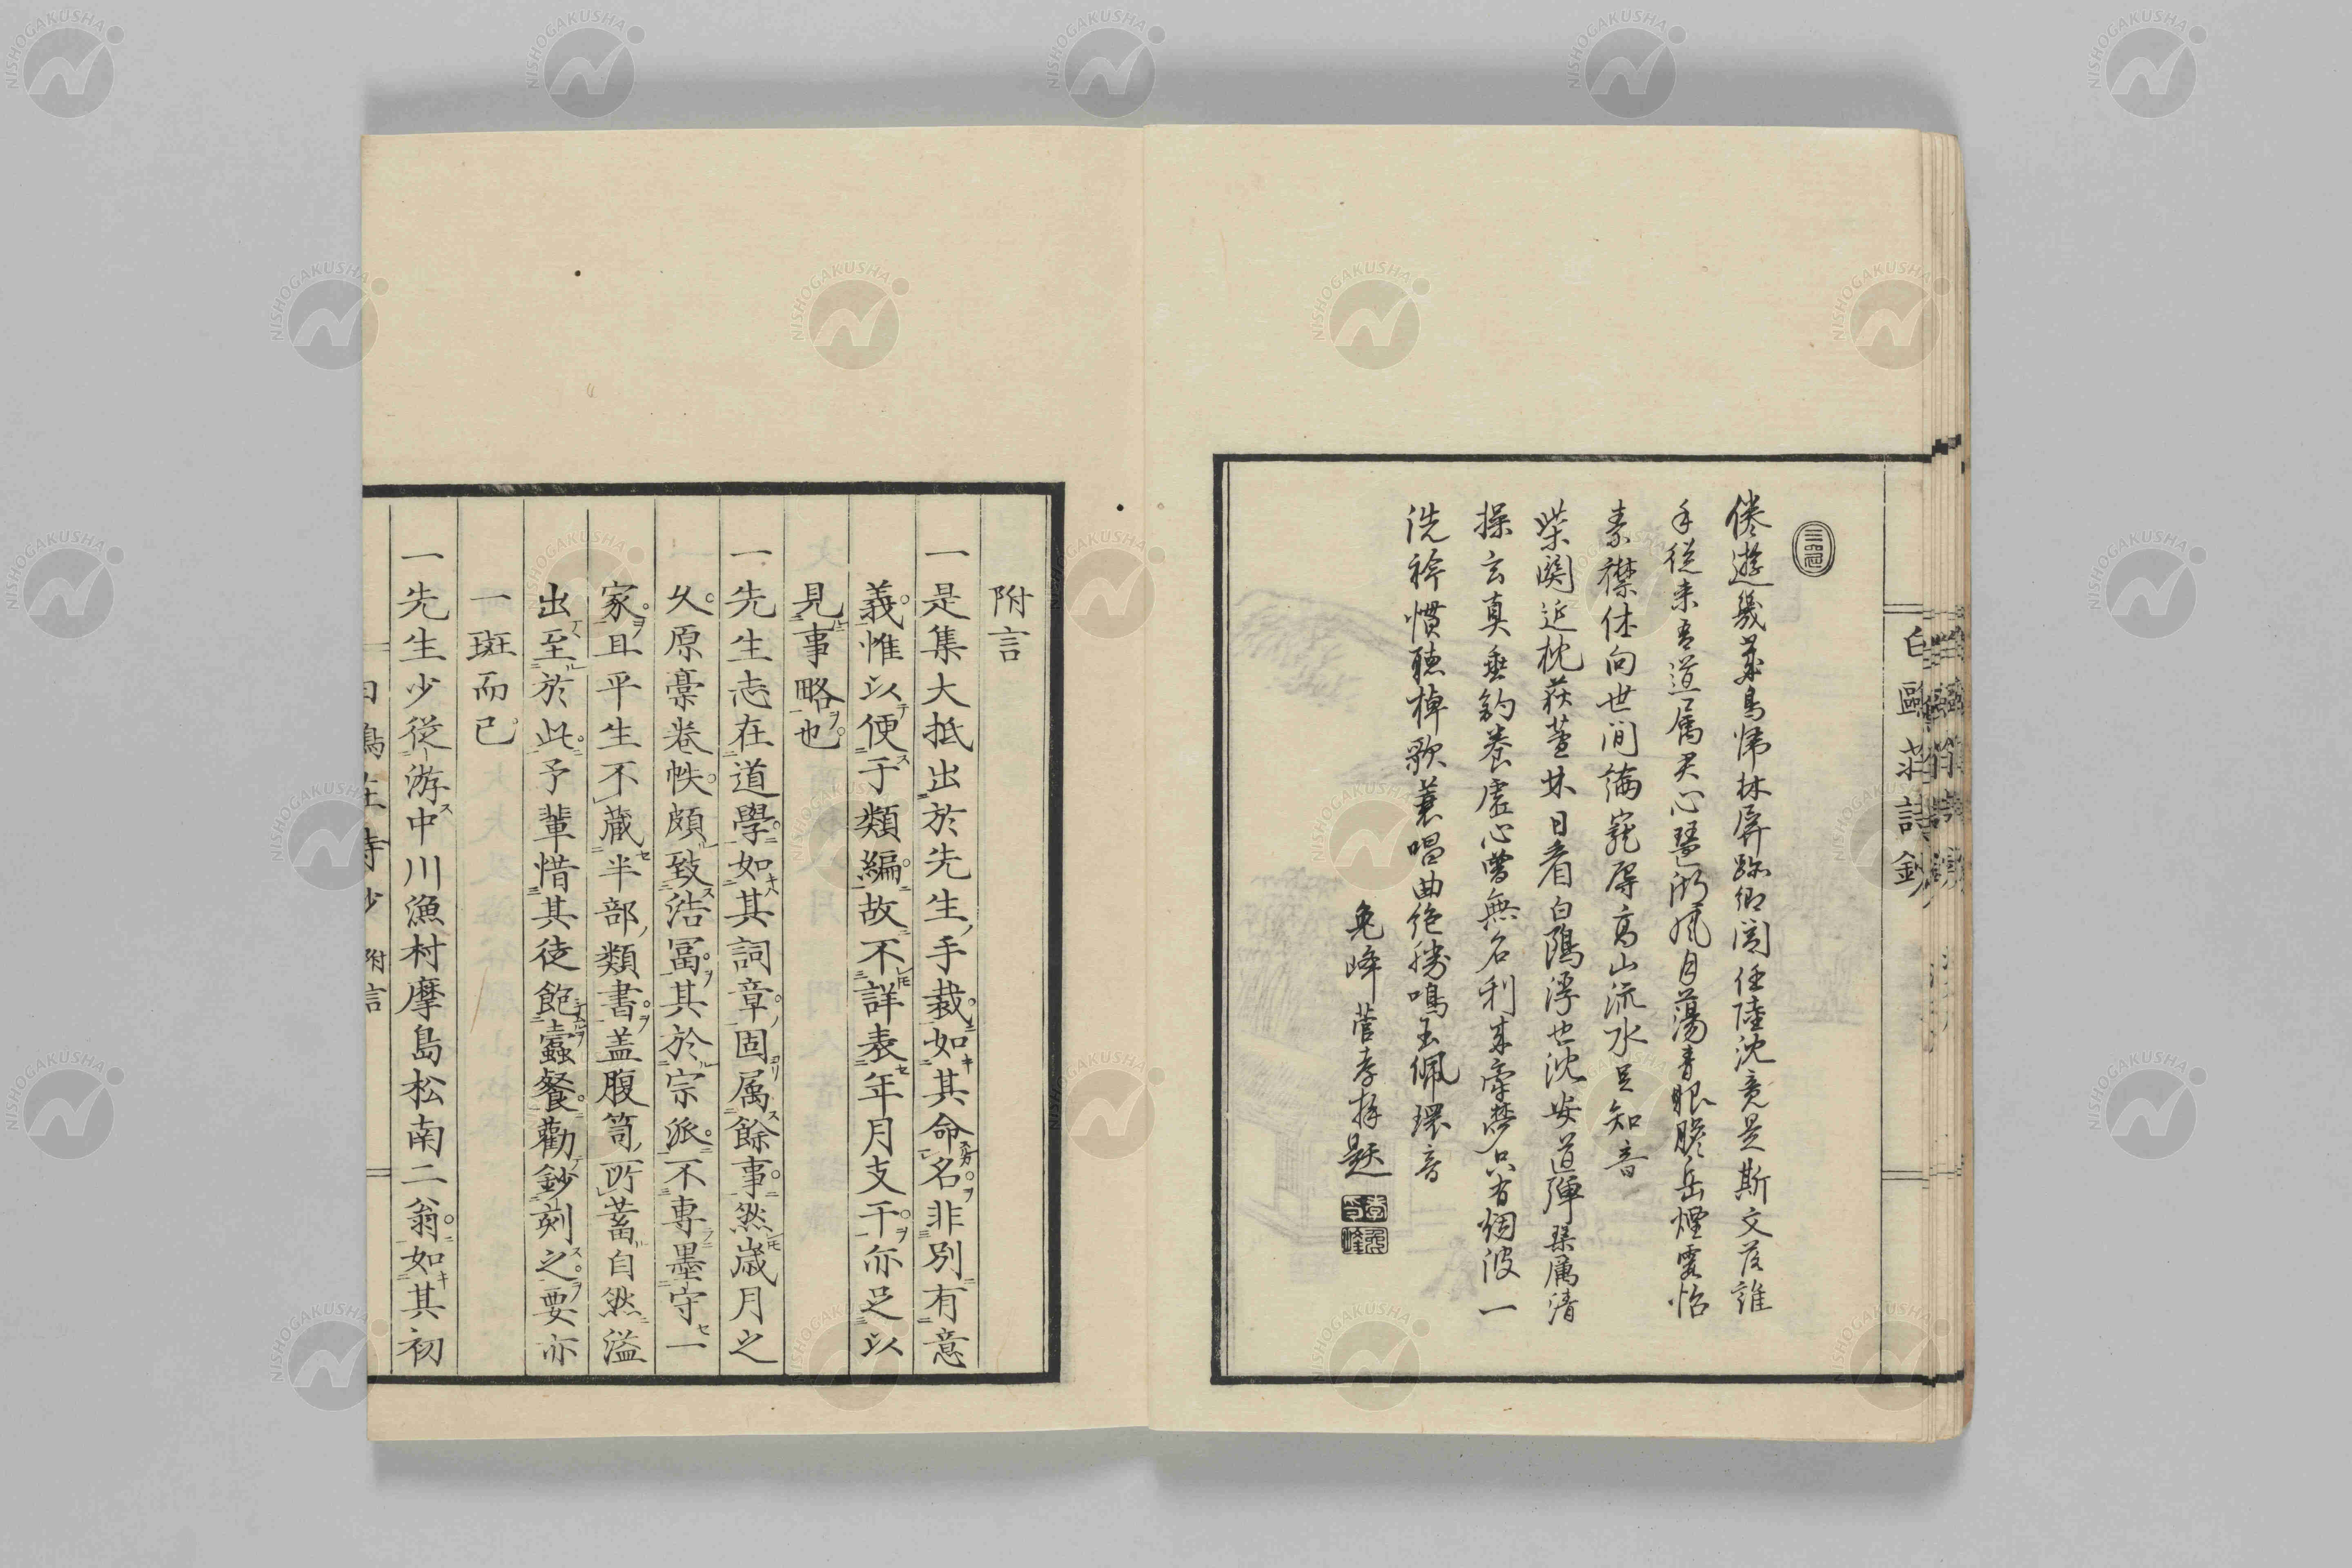 倦遊幾羨鳥歸林屏跡卿閭任陸沈竟是斯文落誰
手從来吾道属君心琴湖風月蕩青眼膽岳煙雲怡
素襟休向世间論寵辱高山流水足知音
柴関近枕荻蘆林日看白鷗浮也沈安道弾琴属清
操玄真垂釣養虚心曽無名利来牽夢只有烟波一
洗衿慣聴棹歌兼唱曲絶勝鳴玉佩環音
兔峰 菅孝 題
白鷗荘詩鈔
附言
一是集大抵出於先生手裁如其命名非別有意
義惟以便于類編故不詳表年月支干亦足以
見事略也
一先生志在道學如其詞章固属餘事然歳月之
久原稾巻帙頗致浩冨其於宗派不専墨守一
家且平生不蔵半部類書盖腹笥所蓄自然溢
出至於此予輩惜其徒飽蠧餐勸鈔刻之要亦
一斑而已
一先生少從游中川漁村摩島松南二翁如其初
附言
NISHOGAKUSHA